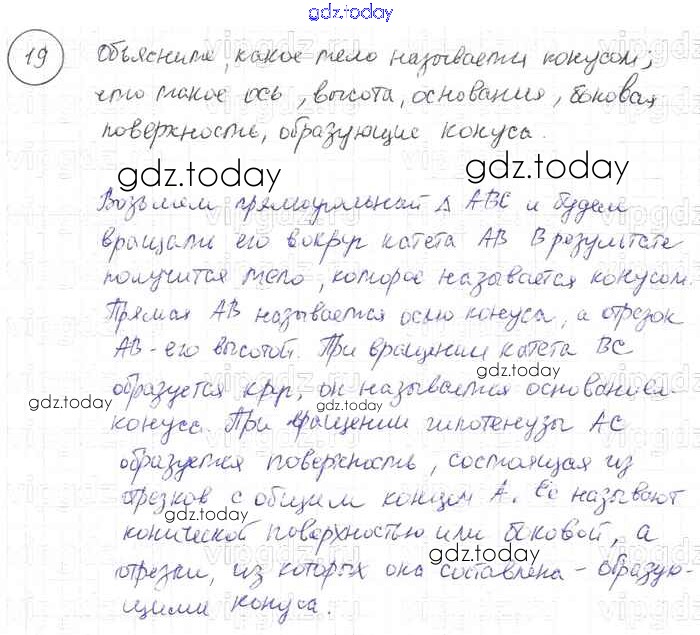 gdz.today
19 Объясните, какое тело называется конусом;
что такое ось, высота, основания, боковая
поверхность, образующие конуса.
gdz.today
gdz.today
Возьмем прямоугольный Δ ABC и будем
вращать его вокруг катета AB В результате
получится тело, которое называется конусом.
Прямая AB называется осью конуса, а отрезок
AB - его высотой. При вращении катета BC
образуется круг, он называется основанием
gdz.today
gdz.today
конуса. При вращении гипотенузы AC
образуется поверхность, состоящая из
отрезков с общим концом A. Её называют
gdz.today
конической поверхностью или боковой, а
gdz.today
отрезки, из которых она составлена - образую-
щими конуса.